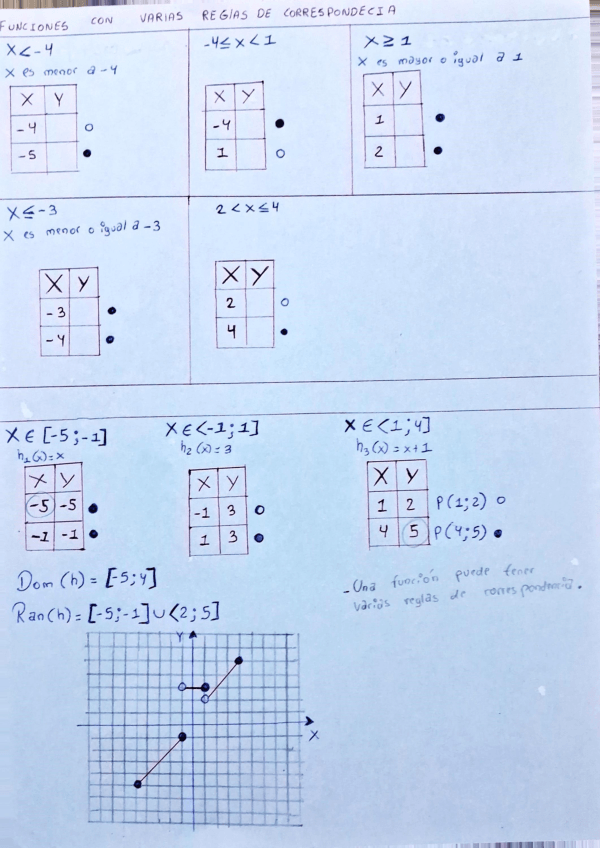 FUNCIONES CON VARIAS REGLAS DE CORRESPONDECIA
X<-4
X es menor a -4
X Y
-4
-5
-4≤x<1
X Y
-4
1
X≥1
X es mayor o igual a 1
X Y
1
2
X≤-3
X es menor o igual a -3
X Y
-3
-4
2<x≤4
X Y
2
4
X∈[-5;-1]
h₁(x)=x
X Y
-5 -5
-1 -1
X∈<-1;1]
h₂(x)=3
X Y
-1 3
1 3
X∈<1;4]
h₃(x)=x+1
X Y
1 2 P(1;2)
4 5 P(4;5)
Dom(h)=[-5;4]
Ran(h)=[-5;-1]∪<2;5]
-Una función puede tener
varias reglas de correspondencia.
Y
X